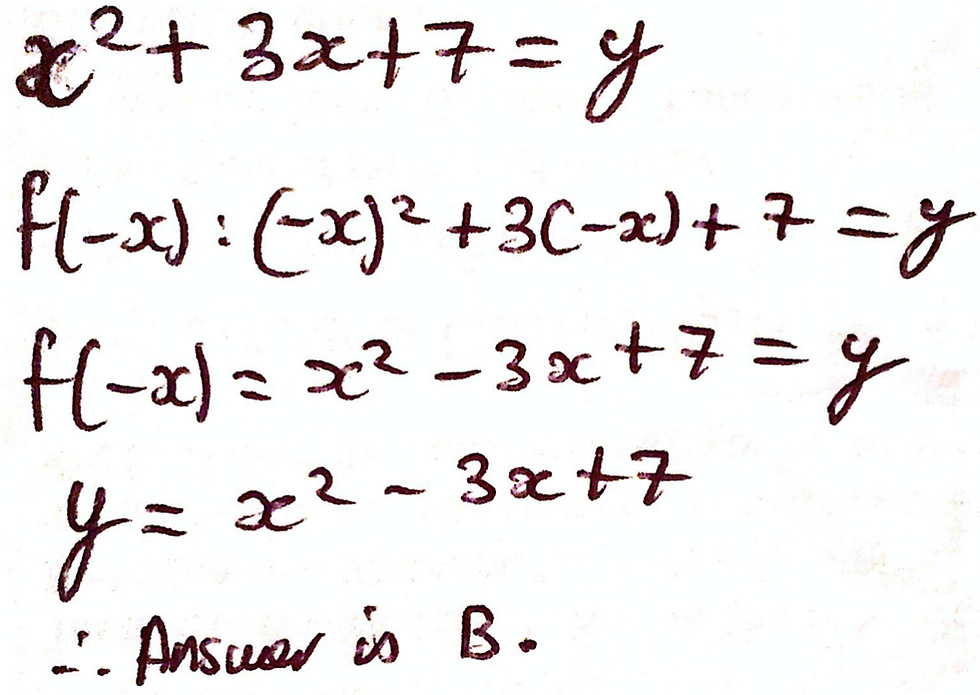 x² + 3x + 7 = y
f(-x) : (-x)² + 3(-x) + 7 = y
f(-x) = x² - 3x + 7 = y
y = x² - 3x + 7
∴ Answer is B.